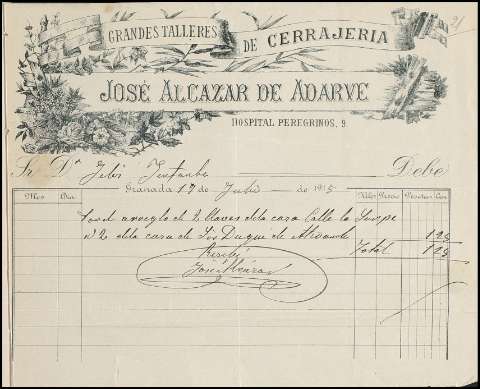 21
GRANDES TALLERES DE CERRAJERIA
JOSÉ ALCAZAR DE ADARVE
HOSPITAL PEREGRINOS, 9.
Sr. Dn. Debe
Granada 17 de Julio de 1915
Mes Día Pesetas Cén.
Por el arreglo de 2 llaves de la casa Calle la
nº 2 de la casa de Los Duque de 1 25
Total 1 25
Recibí
José Alcázar